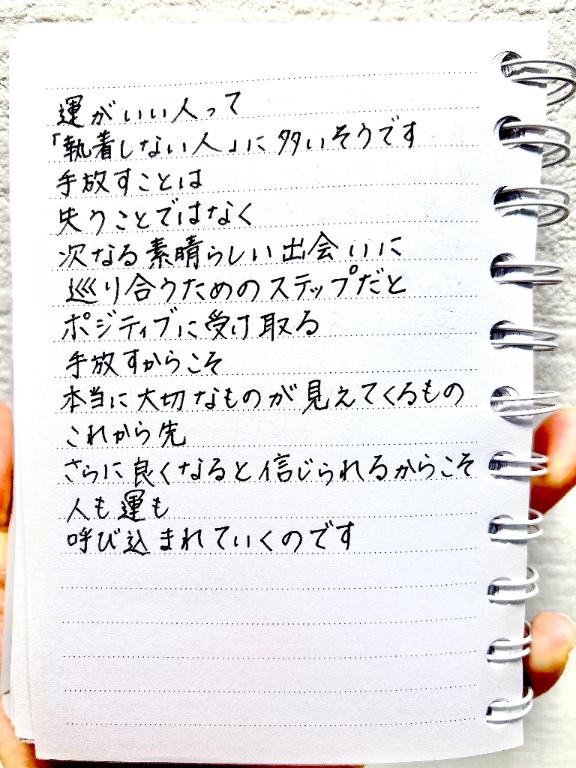 運がいい人って
「執着しない人」に多いそうです
手放すことは
失うことではなく
次なる素晴らしい出会いに
巡り合うためのステップだと
ポジティブに受け取る
手放すからこそ
本当に大切なものが見えてくるもの
これから先
さらに良くなると信じられるからこそ
人も運も
呼び込まれていくのです